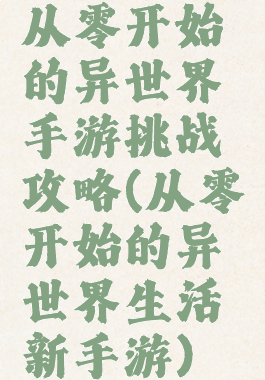 从零开始
的异世界
手游挑战
攻略(从零
开始的异
世界生活
新手游)